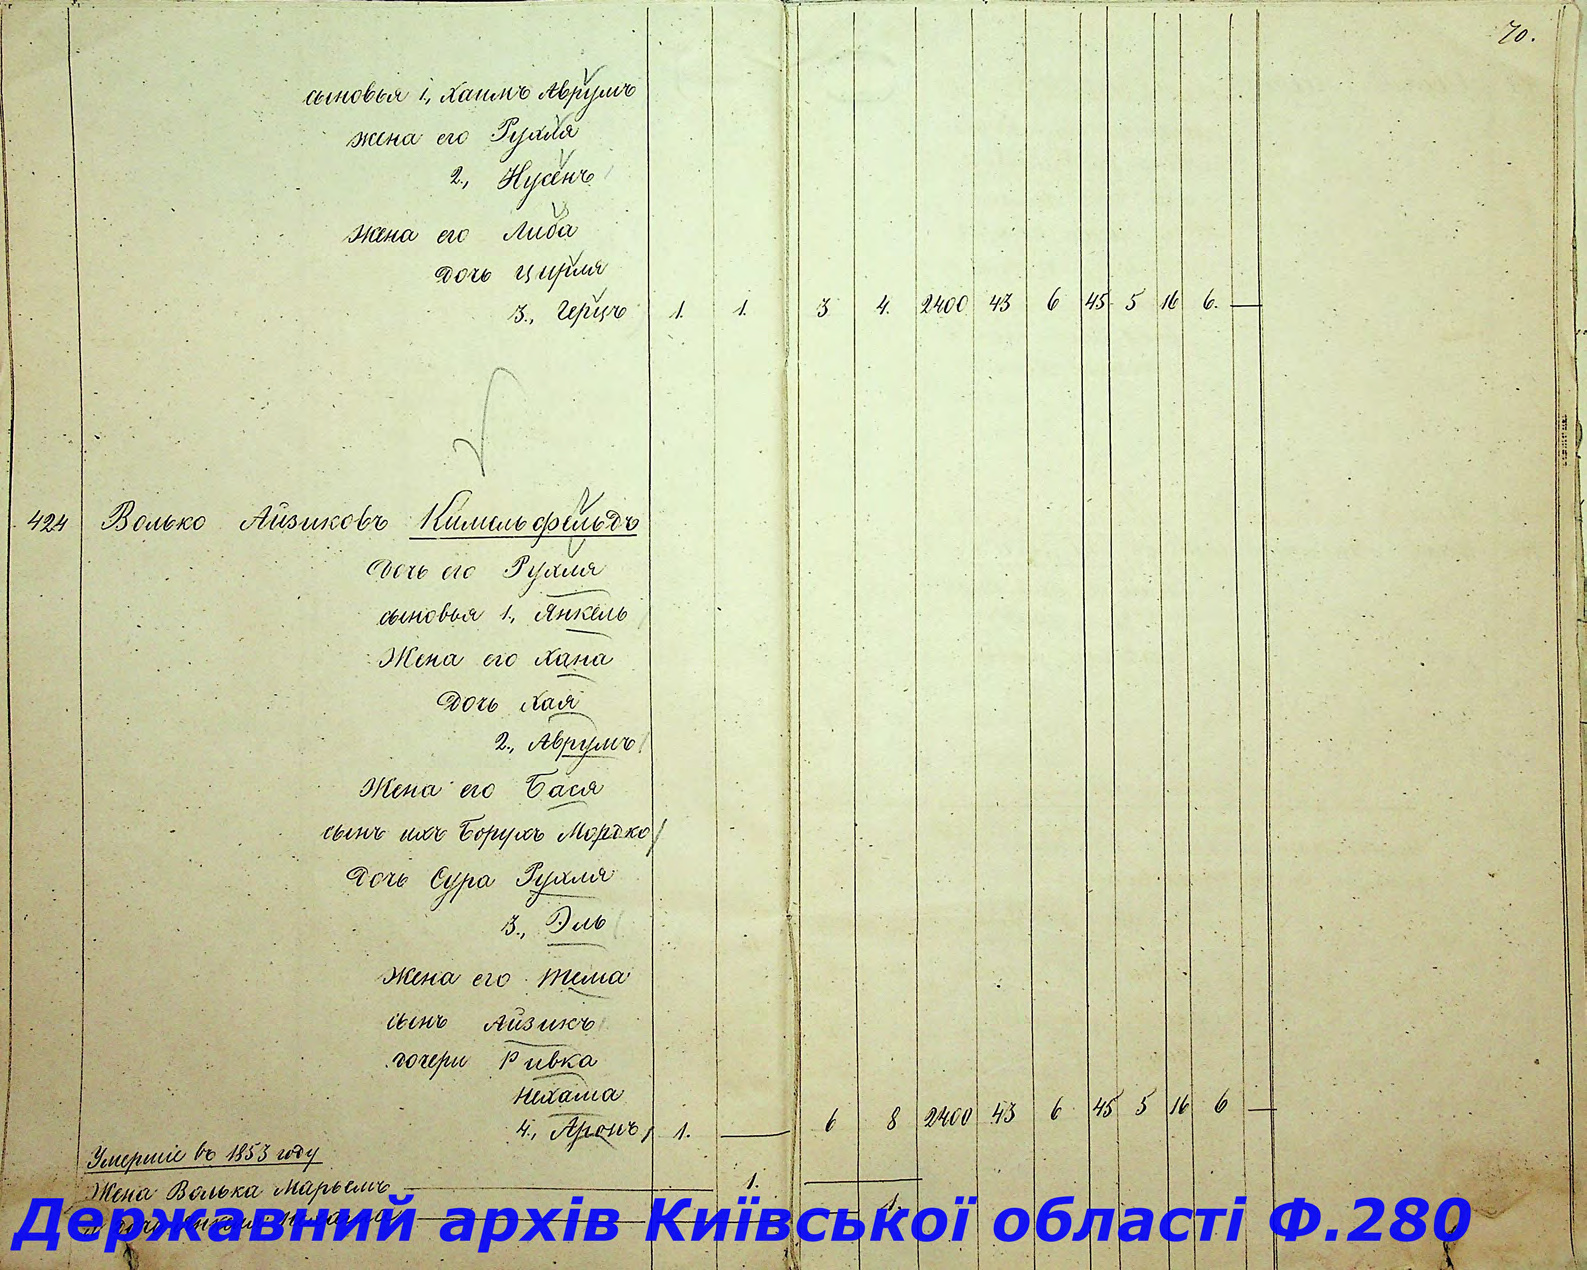 70.
сыновья 1., Хаимъ Аврумъ
жена его Рухля
2., Нусенъ
Жена его Либа
Дочь Цирля
3., Герцъ 1. 1. 3 4. 2400 43 6 45 5 16 6. —
424 Волько Айзиковъ Кимельфельдъ
Дочь его Рухля
сыновья 1., Янкель
Жена его Хана
Дочь Хая
2., Аврумъ
Жена его Бася
сынъ ихъ Борухъ Мордко
Дочь Сура Рухля
3., Эль
Жена его Тема
сынъ Айзикъ
дочери Ривка
Нехама
4., Аронъ 1. — 6 8 2400 43 6 45 5 16 6 —
Умершіе въ 1853 году
Жена Волька Марьемъ — 1. —
1.
Державний архів Київської області Ф.280